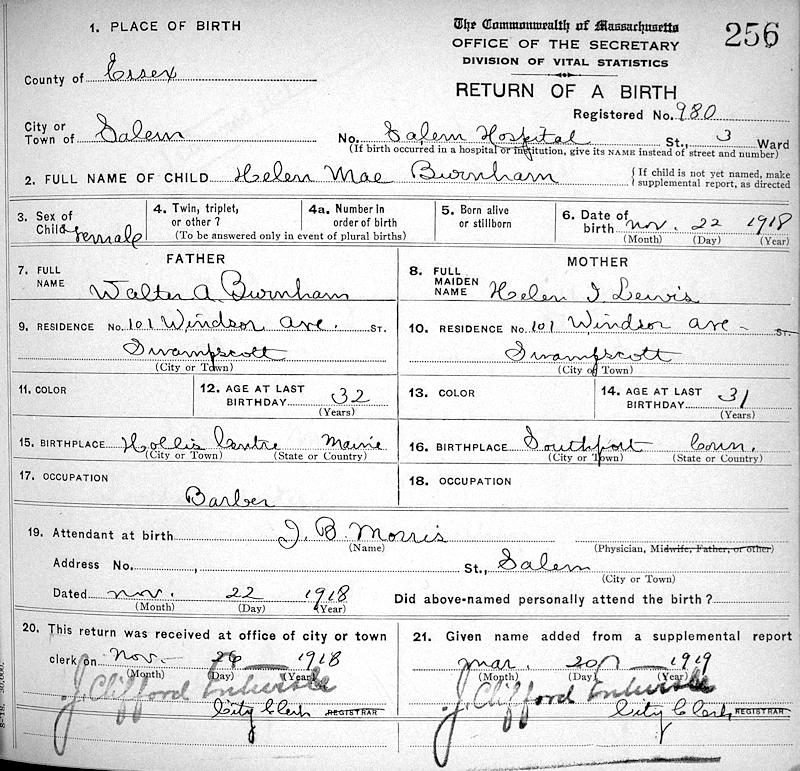 256
The Commonwealth of Massachusetts
OFFICE OF THE SECRETARY
DIVISION OF VITAL STATISTICS
RETURN OF A BIRTH
Registered No. 980
1. PLACE OF BIRTH
County of Essex
City or
Town of Salem No. Salem Hospital St., 3 Ward
(If birth occurred in a hospital or institution, give its NAME instead of street and number)
2. FULL NAME OF CHILD Helen Mae Burnham
If child is not yet named, make
supplemental report, as directed
3. Sex of
Child Female
4. Twin, triplet,
or other ?
4a. Number in
order of birth
(To be answered only in event of plural births)
5. Born alive
or stillborn
6. Date of
birth Nov. 22 1918
(Month) (Day) (Year)
FATHER
7. FULL
NAME Walter A. Burnham
MOTHER
8. FULL
MAIDEN
NAME Helen I. Lewis
9. RESIDENCE No. 101 Windsor Ave. ST.
Swampscott
(City or Town)
10. RESIDENCE No. 101 Windsor Ave ST.
Swampscott
(City or Town)
11. COLOR
12. AGE AT LAST
BIRTHDAY 32
(Years)
13. COLOR
14. AGE AT LAST
BIRTHDAY 31
(Years)
15. BIRTHPLACE Hollis Centre Maine
(City or Town) (State or Country)
16. BIRTHPLACE Southport Conn.
(City or Town) (State or Country)
17. OCCUPATION
Barber
18. OCCUPATION
19. Attendant at birth J. B. Morris
(Name) (Physician, Midwife, Father, or other)
Address No. , St., Salem
(City or Town)
Dated Nov. 22 1918
(Month) (Day) (Year)
Did above-named personally attend the birth ?
20. This return was received at office of city or town
clerk on Nov. 26 1918
(Month) (Day) (Year)
J. Clifford
City Clerk REGISTRAR
21. Given name added from a supplemental report
Mar. 20 1919
(Month) (Day) (Year)
J. Clifford
City Clerk REGISTRAR